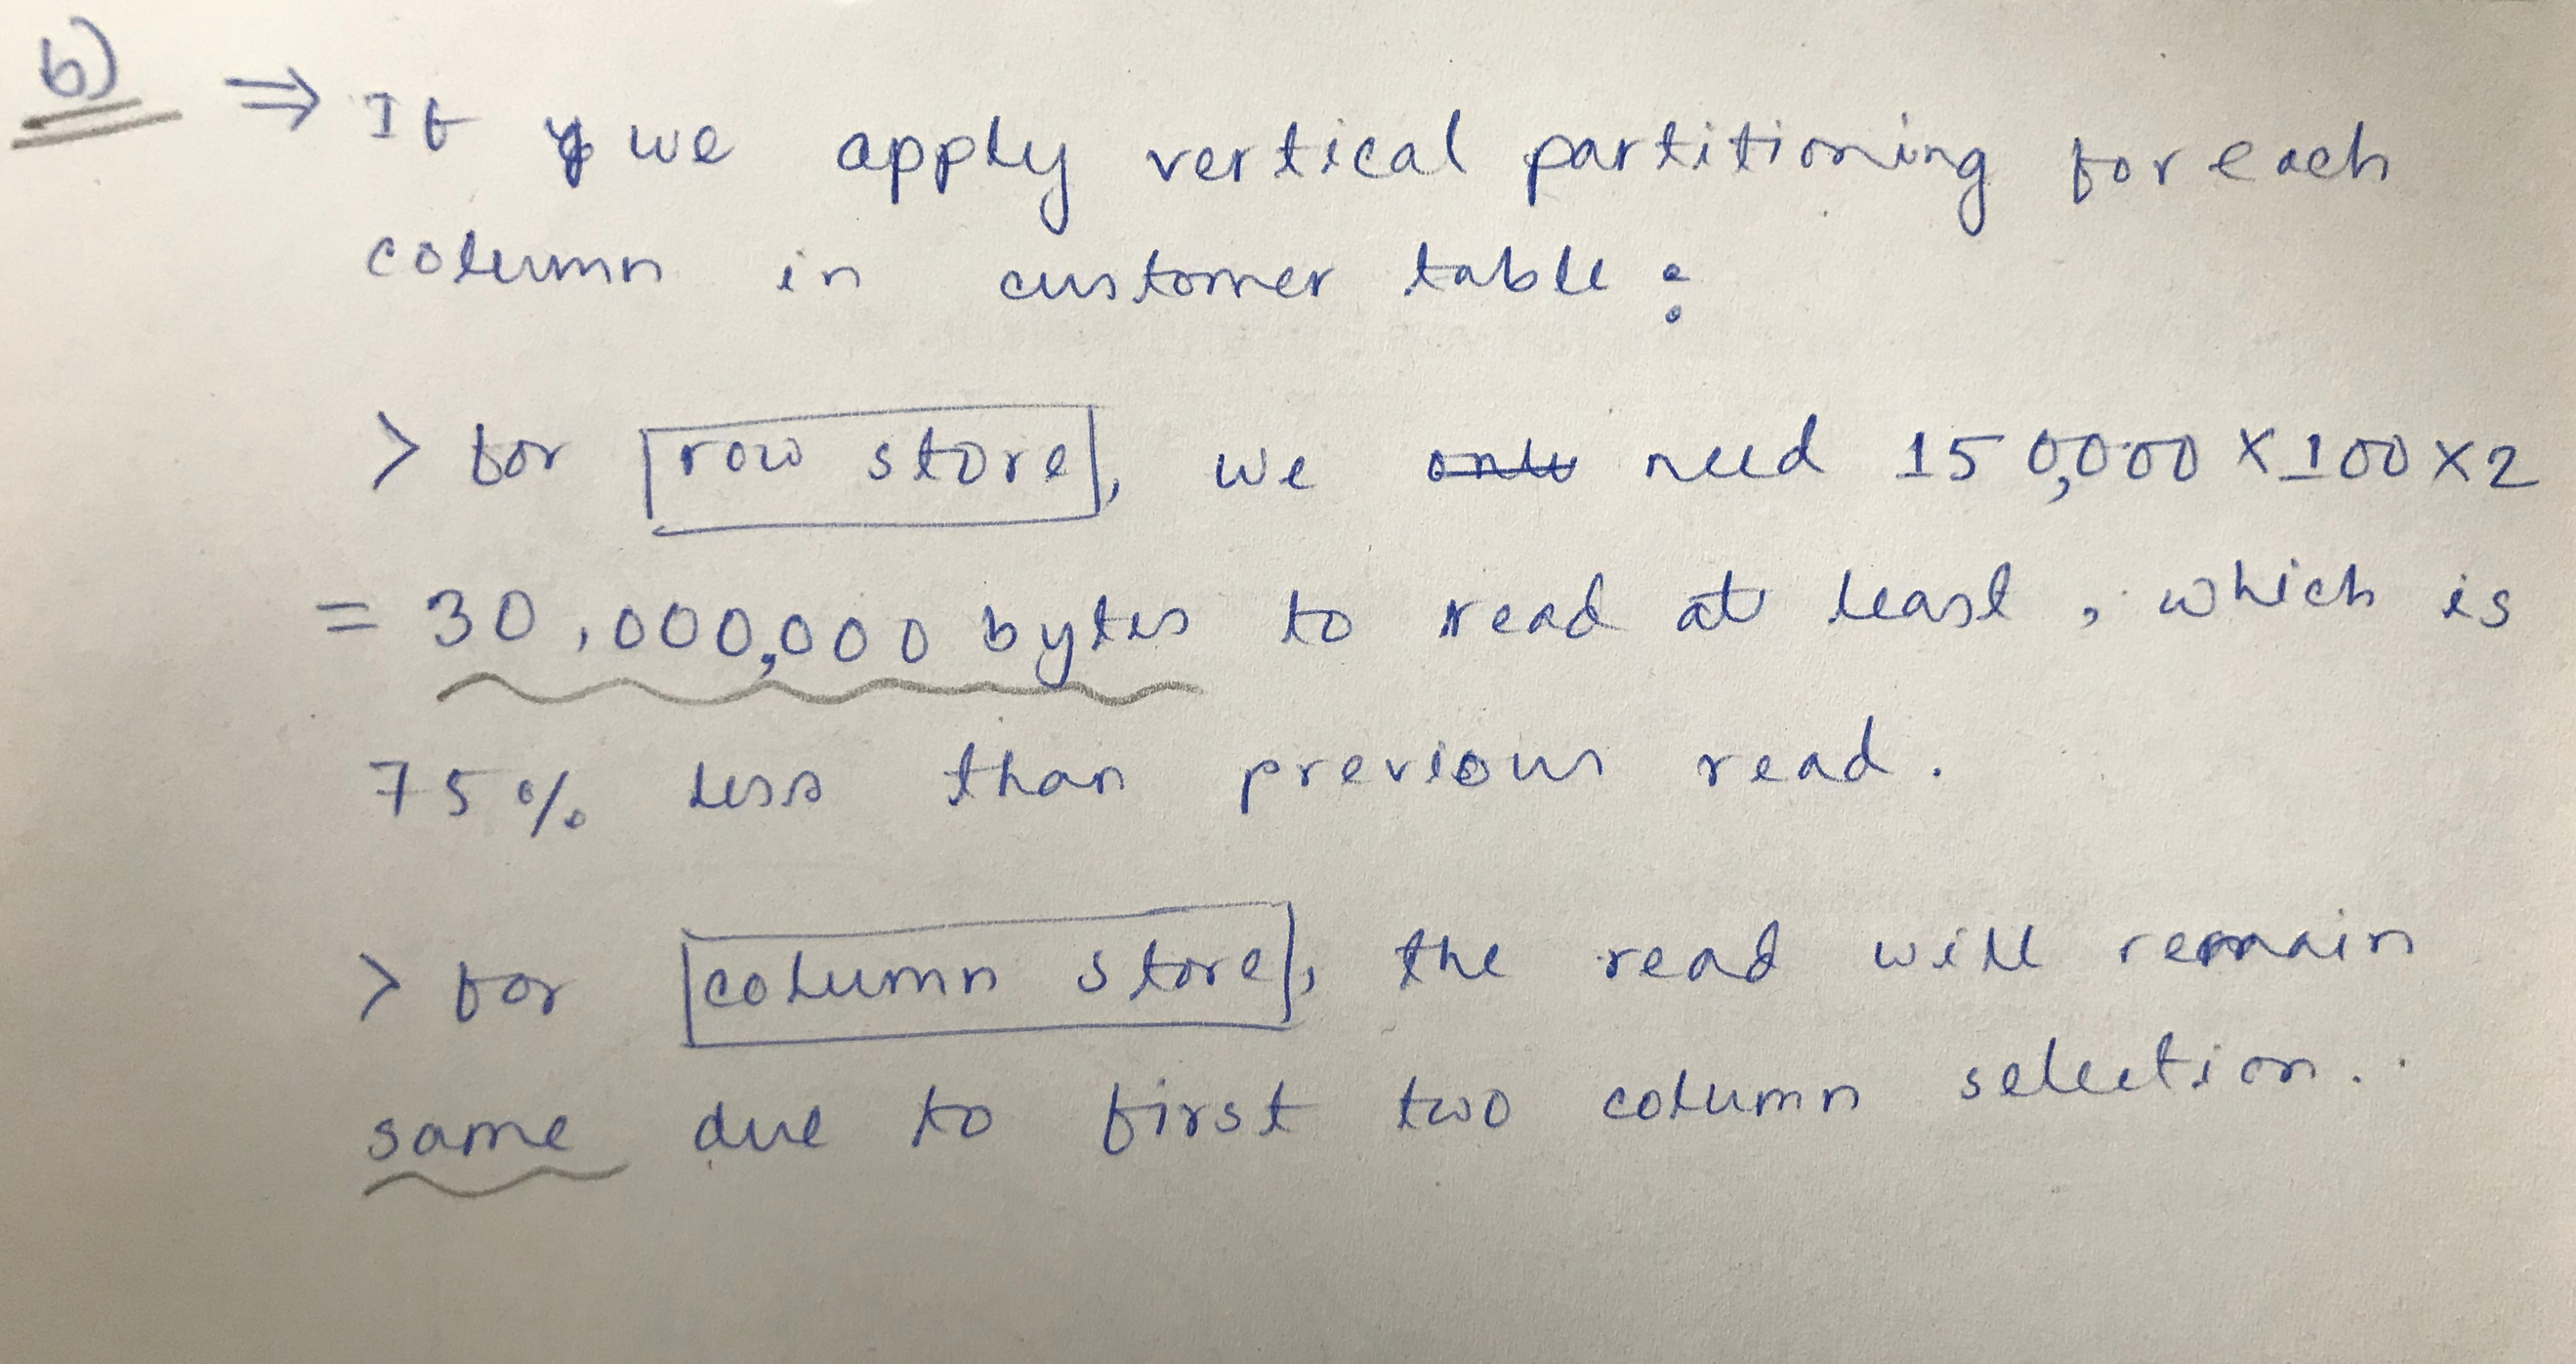 b) ⇒ If we apply vertical partitioning for each
column in customer table:
> for row store, we need 150,000 × 100 × 2
= 30,000,000 bytes to read at least, which is
75% less than previous read.
> for column store, the read will remain
same due to first two column selection.